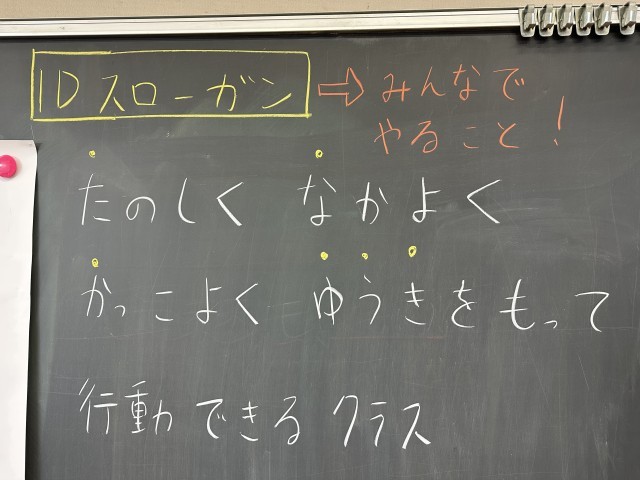 1Dスローガン ⇨ みんなで
やること!
たのしく なかよく
かっこよく ゆうきをもって
行動できる クラス